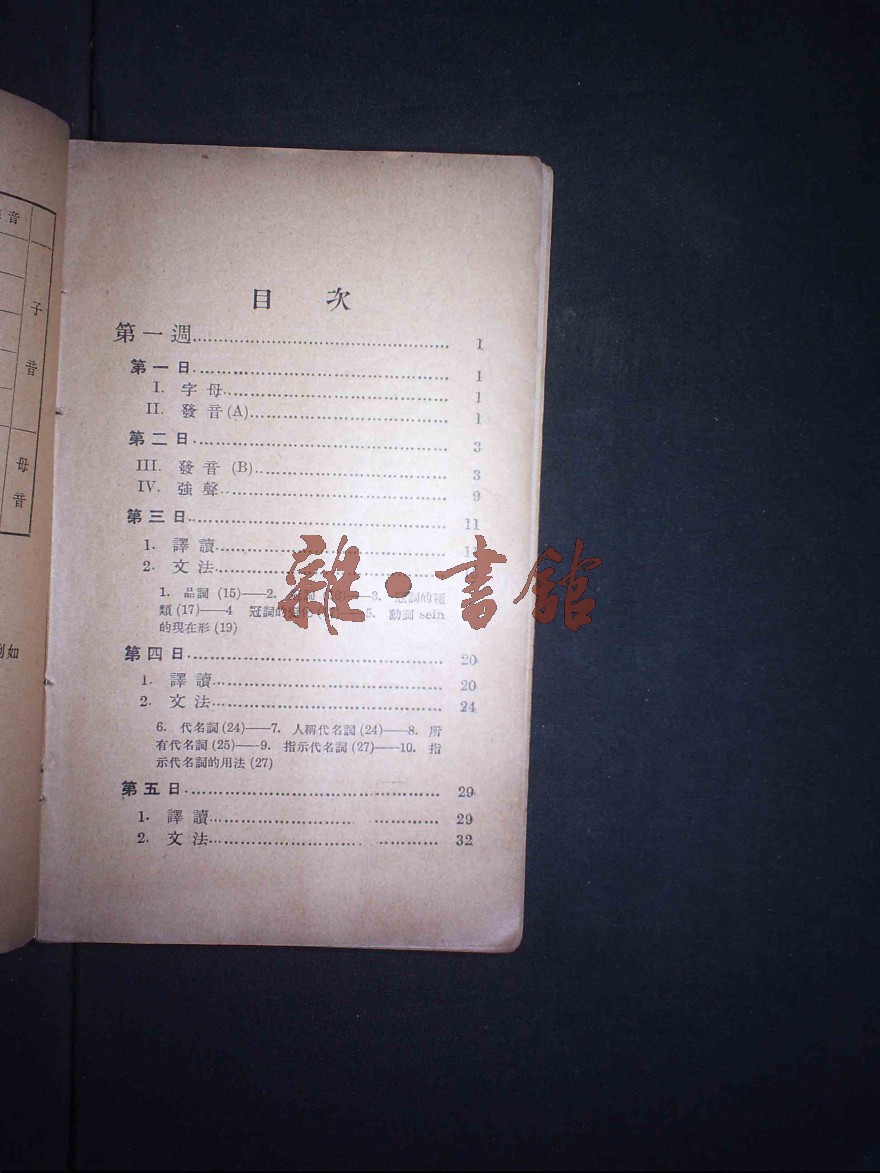 音
子
音
母
音
如
目 次
第一週 1
第一日 1
I. 字母 1
II. 發音(A) 1
第二日 3
III. 發音 (B) 3
IV. 強聲 9
第三日 11
1. 譯讀 11
2. 文法
1. 品詞 (15)——2. ——3. 冠詞的種
類(17)——4 冠詞的變化 ——5. 動詞 sein
的現在形(19)
第四日 20
1. 譯讀 20
2. 文法 24
6. 代名詞(24)——7. 人稱代名詞(24)——8. 所
有代名詞(25)——9. 指示代名詞(27)——10. 指
示代名詞的用法(27)
第五日 29
1. 譯讀 29
2. 文法 32
雜·書館